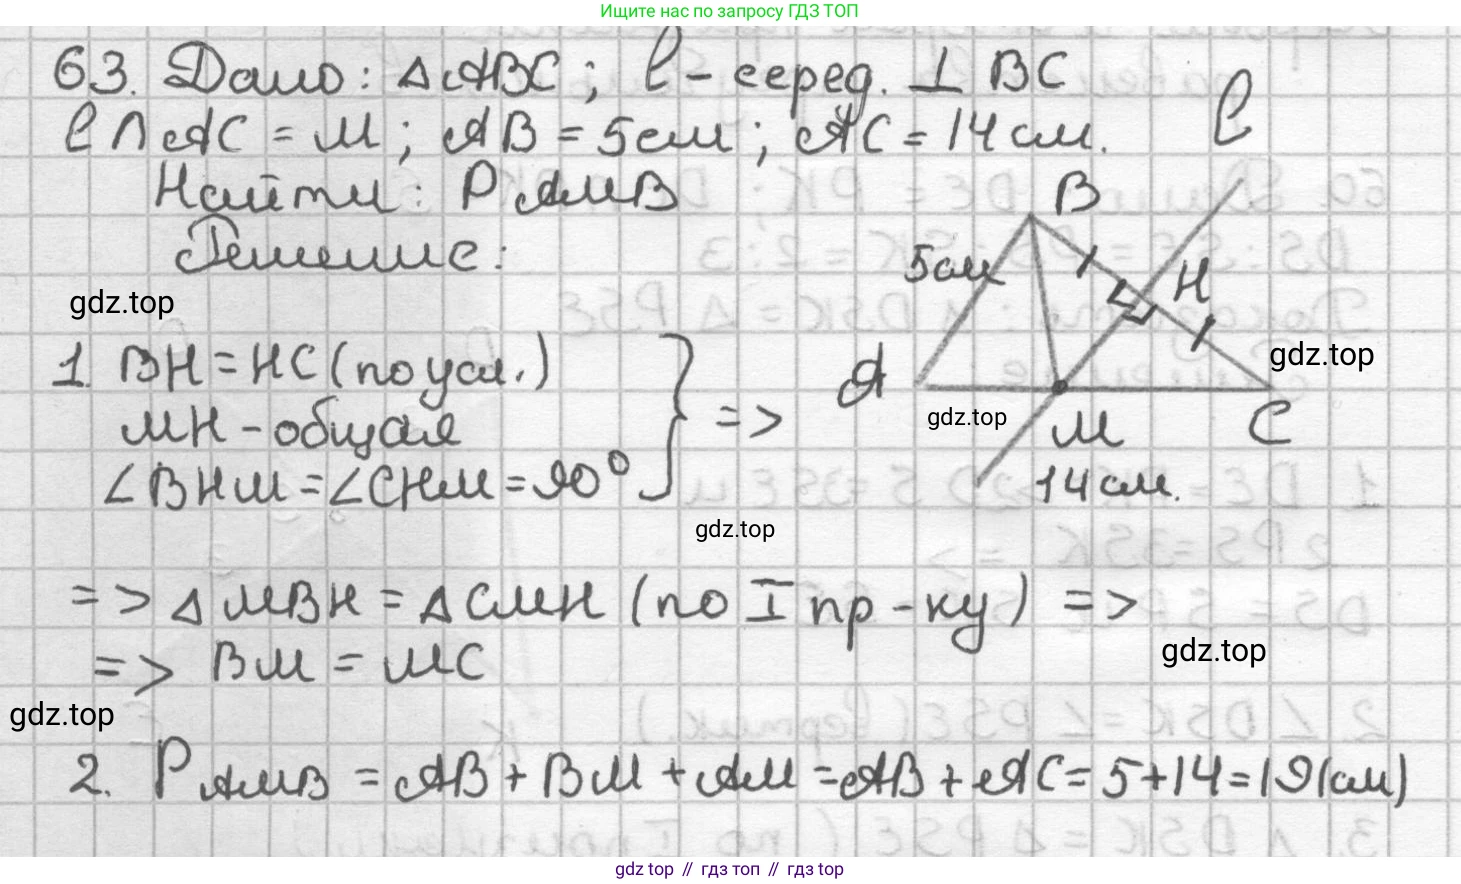 Ищите нас по запросу ГДЗ ТОП
63. Дано: △ABC; l - серед. ⊥ BC
l ∩ AC = M; AB = 5см; AC = 14 см.
l
Найти: P AMB
Решение:
B
5см
H
gdz.top
1. BH = HC (по усл.)
MH - общая
∠BHM = ∠CHM = 90°
} =>
A
gdz.top
gdz.top
M
C
14 см.
gdz.top
=> △MBH = △CMH (по I пр-ку) =>
=> BM = MC
gdz.top
gdz.top
2. P AMB = AB + BM + AM = AB + AC = 5+14 = 19(см)
gdz top // гдз топ // гдз top